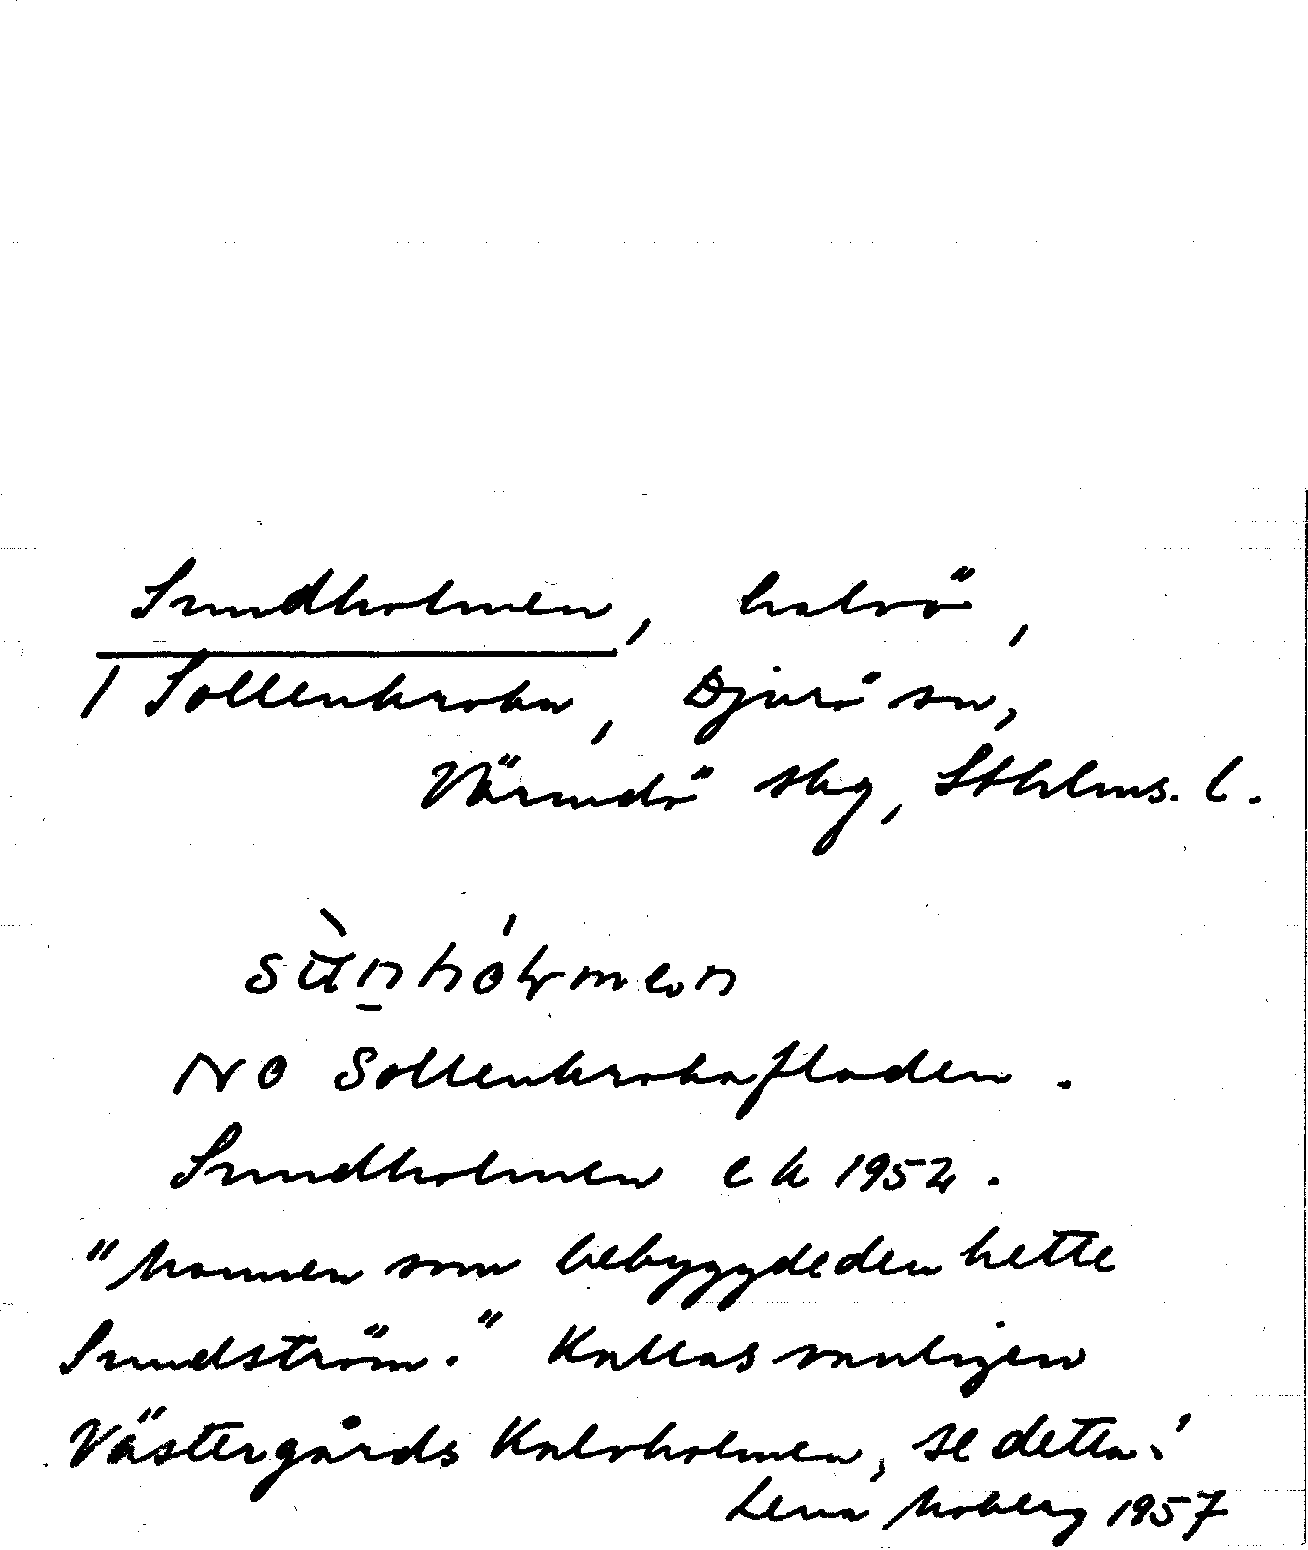 Sundholmen, halvö,
/ Sollenkroka, Djurö sn,
Värmdö skg, Sthlms. l.
NO Sollenkrokafladen.
Sundholmen ek 1952.
"Mannen som bebyggde den hette
Sundström." Kallas vanligen
Västergårds Kalvholmen, se detta!
Lena Moberg 1957